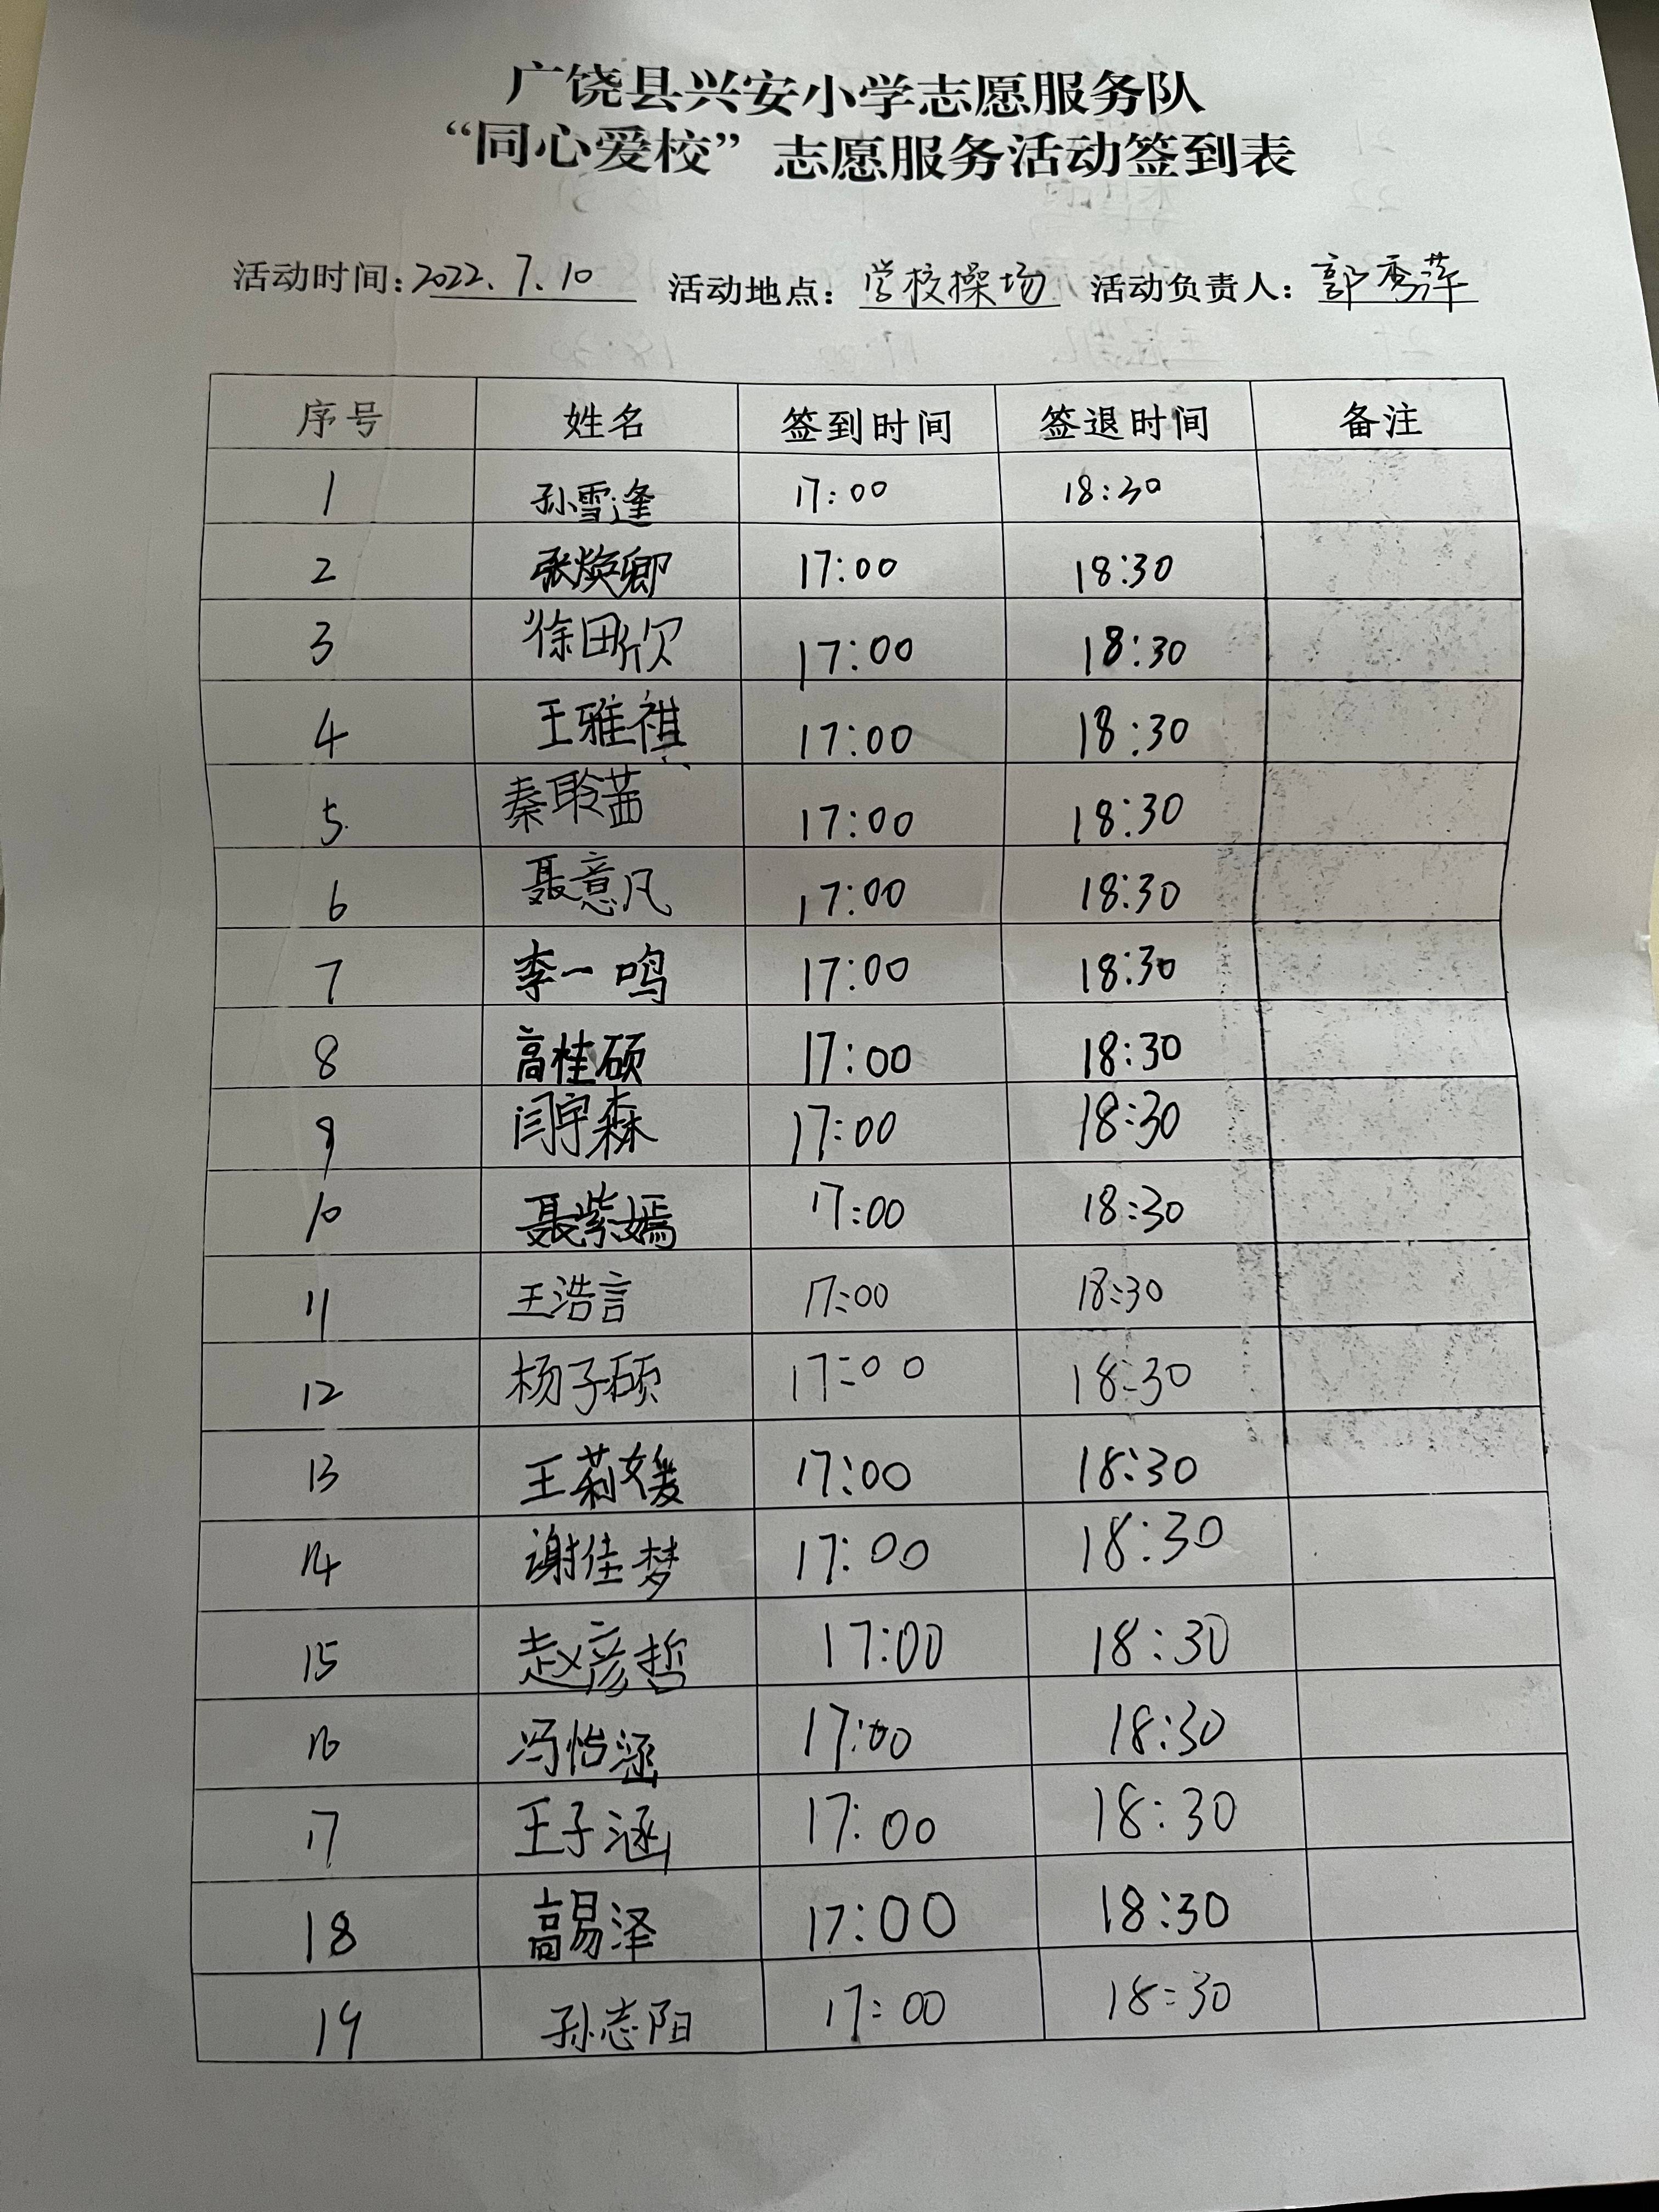 广饶县兴安小学志愿服务队
“同心爱校”志愿服务活动签到表
活动时间：2022.7.10 活动地点：学校操场 活动负责人：郭秀萍
序号 姓名 签到时间 签退时间 备注
1 孙雪逢 17:00 18:30
2 张焕卿 17:00 18:30
3 徐田欣 17:00 18:30
4 王雅祺 17:00 18:30
5 秦聆茜 17:00 18:30
6 聂意凡 17:00 18:30
7 李一鸣 17:00 18:30
8 高桂硕 17:00 18:30
9 闫宇森 17:00 18:30
10 聂紫嫣 17:00 18:30
11 王浩言 17:00 18:30
12 杨子硕 17:00 18:30
13 王莉媛 17:00 18:30
14 谢佳梦 17:00 18:30
15 赵彦哲 17:00 18:30
16 冯怡涵 17:00 18:30
17 王子涵 17:00 18:30
18 高易泽 17:00 18:30
19 孙志阳 17:00 18:30